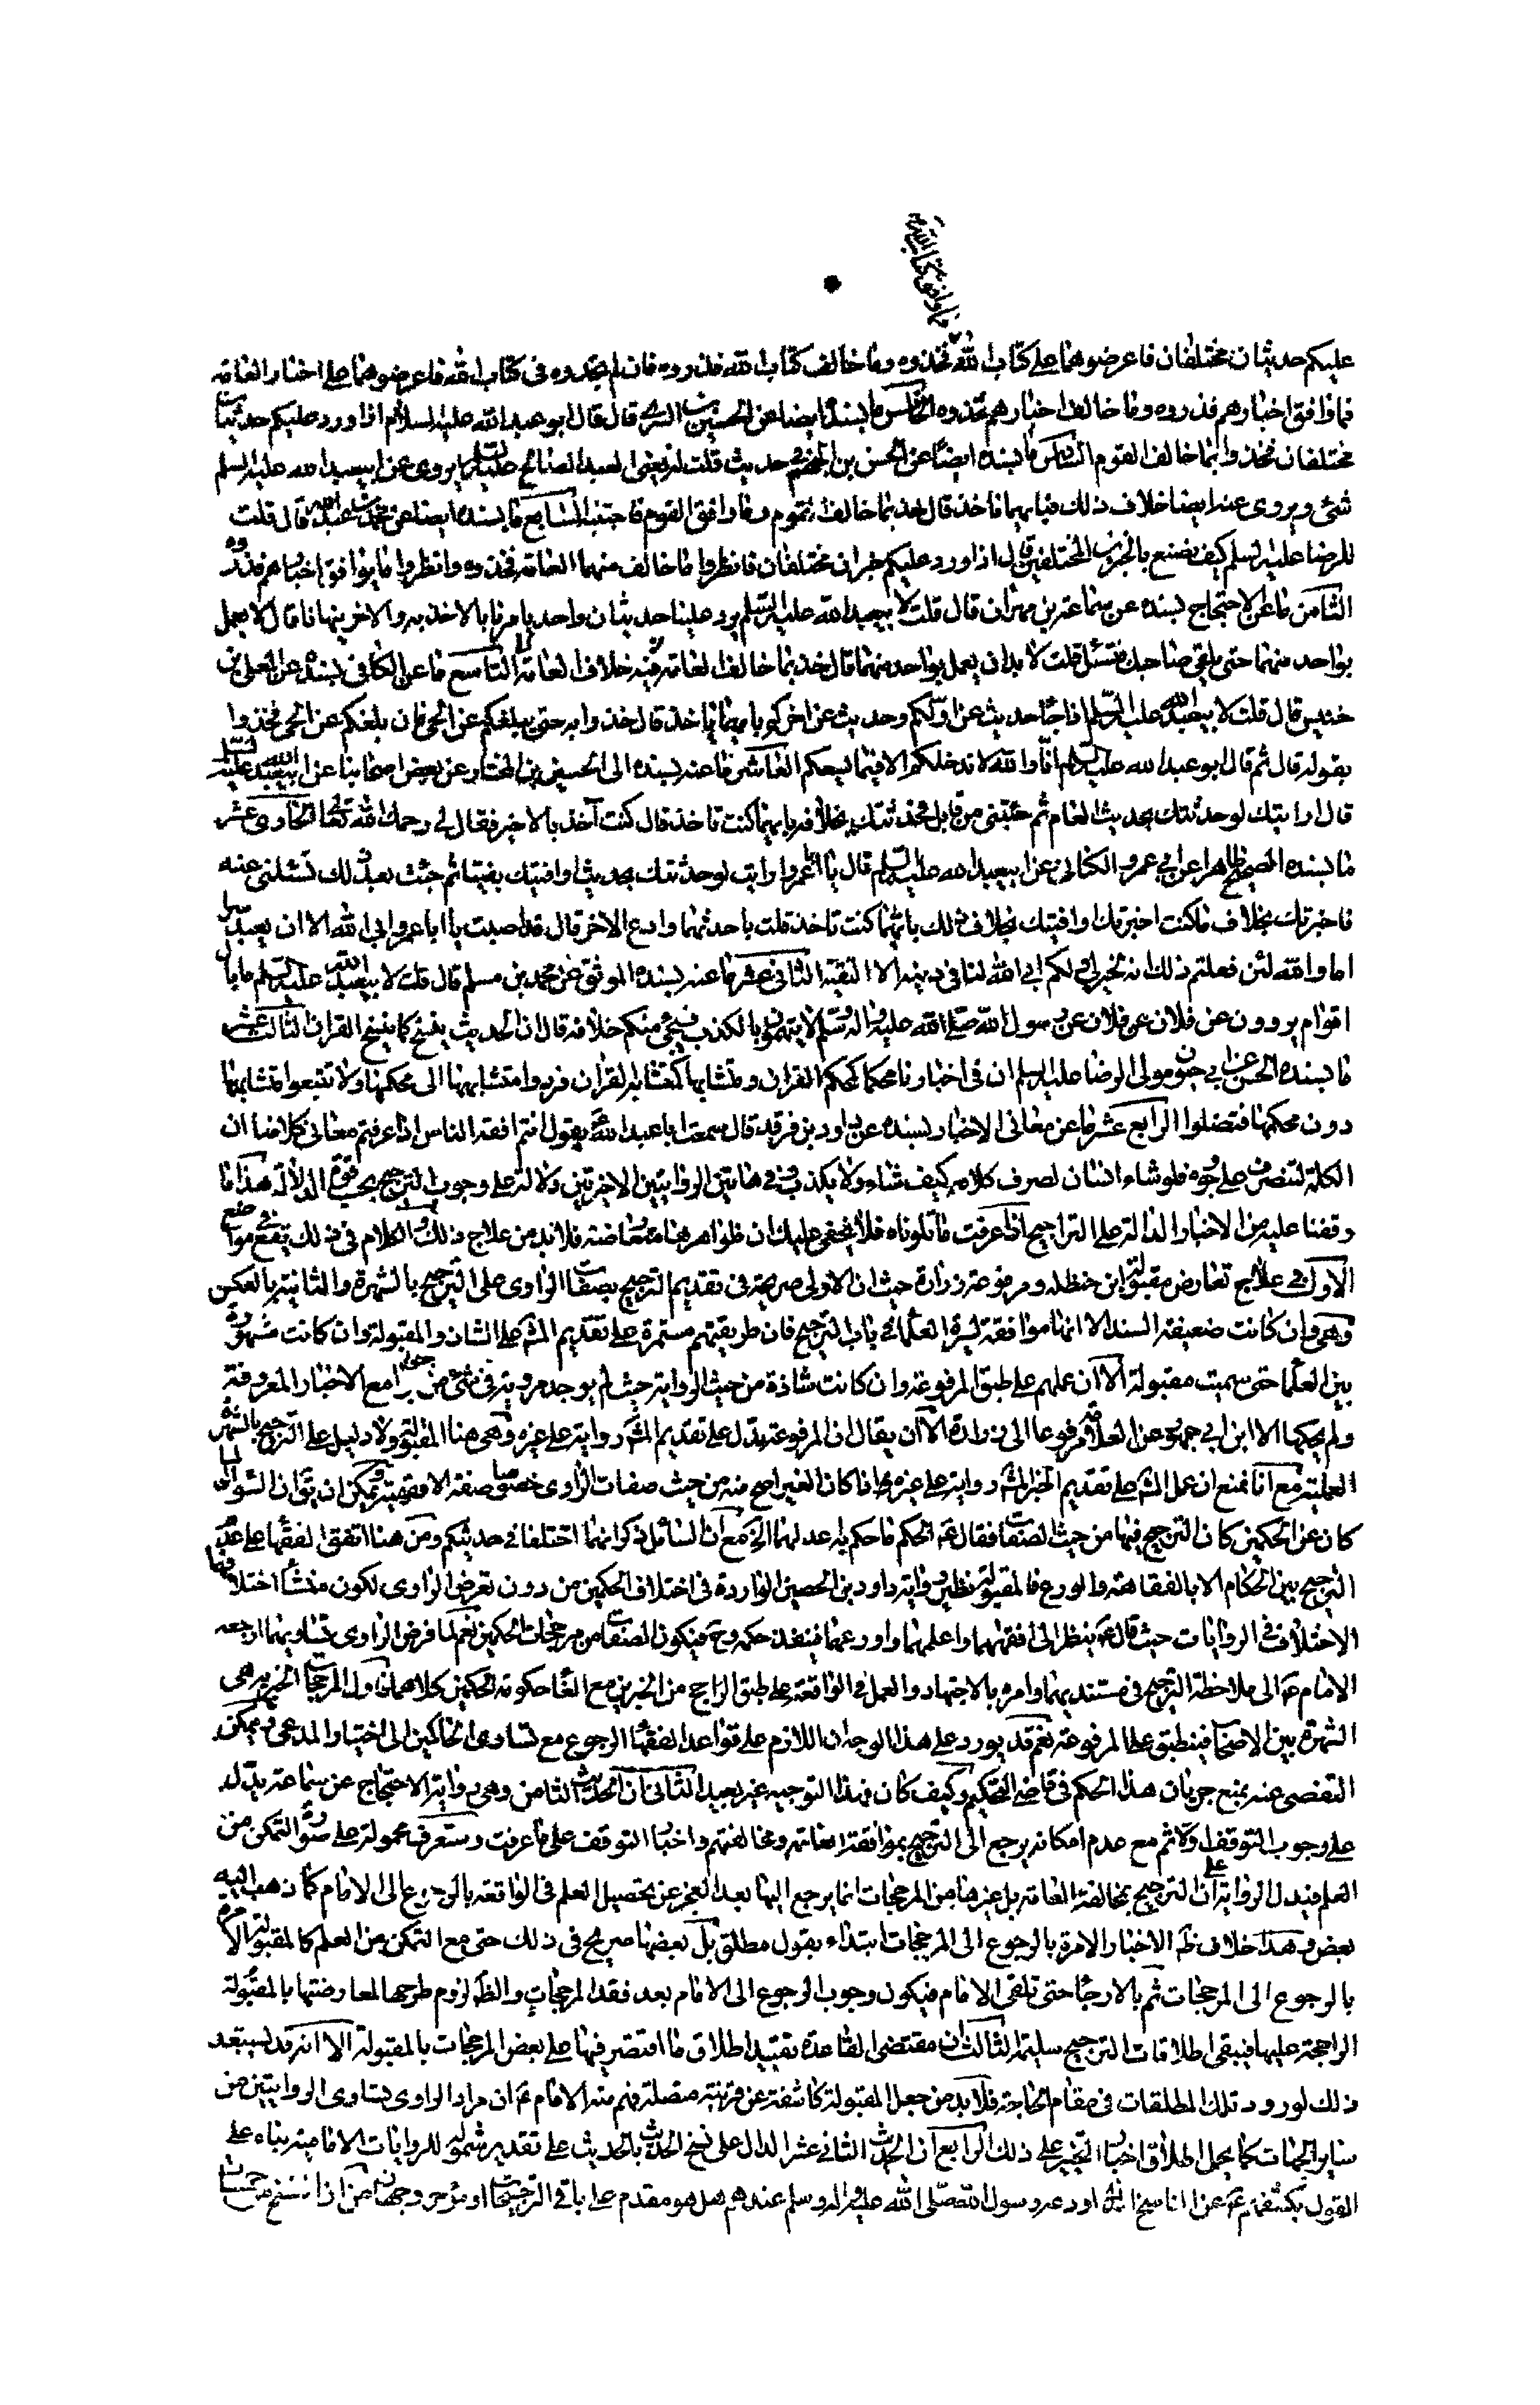 فما وافق كتاب الله
عليكم حديثان مختلفان فاعرضوهما على كتاب الله فخذوه وما خالف كتاب الله فذروه فان لم تجدوه فى كتاب الله فاعرضوهما على اخبار العامة
فما وافق اخبارهم فذروه وما خالف اخبارهم فخذوه الخامس ما بسنده ايضا عن الحسين بن السرى قال قال ابو عبد الله عليه السلام اذا ورد عليكم حديثان
مختلفان فخذوا بما خالف القوم السادس ما بسنده ايضا عن الحسن بن الجهم فى حديث قلت له يعنى العبد الصالح عليه السلم يروى عن ابيعبد الله عليه السلم
شئ ويروى عنه ايضا خلاف ذلك فبايهما ناخذ قال خذ بما خالف القوم وما وافق القوم فاجتنبه السابع ما بسنده ايضا عن محمد بن عبد الله قال قلت
للرضا عليه السلم كيف نصنع بالخبرين المختلفين قال اذا ورد عليكم خبران مختلفان فانظروا ما خالف منهما العامة فخذوه وانظروا ما يوافق اخبارهم فذروه
الثامن ما عن الاحتجاج بسنده عن سماعة بن مهران قال قلت لابيعبد الله عليه السلم يرد علينا حديثان واحد يامرنا بالاخذ به والاخر ينهانا قال لا يعمل
بواحد منهما حتى يلقى صاحبك فتسئل قلت لا بد ان يعمل بواحد منهما قال خذ بما خالف العامة فيه خلاف العامة التاسع ما عن الكافى بسنده عن المعلى بن
خنيس قال قلت لابيعبد الله عليه السلم اذا جاء حديث عن اولكم وحديث عن اخركم بايهما ناخذ قال خذوا به حتى يبلغكم عن الحى فان بلغكم عن الحى فخذوا
بقوله قال ثم قال ابو عبد الله عليه السلم انا والله لا ندخلكم الا فيما يسعكم العاشر ما عنه بسنده الى الحسين بن المختار عن بعض اصحابنا عن ابيعبد الله عليه السلم
قال ارايتك لو حدثتك بحديث العام ثم جئتنى من قابل فحدثتك بخلافه بايهما كنت تاخذ قال كنت آخذ بالاخير فقال لى رحمك الله تعالى الحادى عشر
ما بسنده الصحيح ظاهرا عن ابى عمرو الكنانى عن ابيعبد الله عليه السلم قال يا ابا عمرو ارايت لو حدثتك بحديث او افتيتك بفتيا ثم جئت بعد ذلك تسئلنى عنه
فاخبرتك بخلاف ما كنت اخبرتك او افتيتك بخلاف ذلك بايهما كنت تاخذ قلت باحدثهما وادع الاخر قال قد اصبت يا ابا عمرو ابى الله الا ان يعبد سرا
اما والله لئن فعلتم ذلك انه لخير لى ولكم ابى الله لنا فى دينه الا التقية الثانى عشر ما عنه بسنده الموثق عن محمد بن مسلم قال قلت لابيعبد الله عليه السلم ما بال
اقوام يروون عن فلان عن فلان عن رسول الله صلى الله عليه واله وسلم لا يتهمون بالكذب فيجئ منكم خلافه قال ان الحديث ينسخ كما ينسخ القران الثالث عشر
ما بسنده الحسن عن ابى حيون مولى الرضا عليه السلم ان فى اخبارنا محكما كمحكم القران ومتشابها كمتشابه القران فردوا متشابهها الى محكمها ولا تتبعوا متشابهها
دون محكمها فتضلوا الرابع عشر ما عن معانى الاخبار بسنده عن داود بن فرقد قال سمعت ابا عبد الله يقول انتم افقه الناس اذا عرفتم معانى كلامنا ان
الكلمة لتنصرف على وجوه فلو شاء انسان لصرف كلامه كيف شاء ولا يكذب وفى هاتين الروايتين الاخيرتين دلالة على وجوب الترجيح بحسب قوة الدلالة هذا ما
وقفنا عليه من الاخبار الدالة على التراجيح اذا عرفت ما تلوناه فلا يخفى عليك ان ظواهرها متعارضة فلا بد من علاج ذلك والكلام فى ذلك يقع فى مواضع
الاول فى علاج تعارض مقبولة ابن حنظله ومرفوعة زرارة حيث ان الاولى صريحة فى تقديم الترجيح بصفات الراوى على الترجيح بالشهرة والثانية بالعكس
وهى وان كانت ضعيفة السند الا انها موافقة لسيرة العلماء فى باب الترجيح فان طريقتهم مستمرة على تقديم المش على الشاذ والمقبولة وان كانت مشهورة
بين العلماء حتى سميت مقبولة الا ان عملهم على طبق المرفوعة وان كانت شاذة من حيث الرواية حيث لم يوجد مروية فى شئ من جوامع الاخبار المعروفة
ولم يحكها الا ابن ابى جمهور عن العلامة مرفوعا الى زرارة الا ان يقال ان المرفوعة تدل على تقديم المش رواية على غيره وهى هنا المقبولة ولا دليل على الترجيح بالشهرة
العملية مع انا نمنع ان عمل المش على تقديم الخبر المش رواية على غيره اذا كان الغير اصح منه من حيث صفات الراوى خصوصا صفة الافقهية ويمكن ان يق ان السؤال لما
كان عن الحكمين كان الترجيح فيهما من حيث الصفات فقال ع الحكم ما حكم به اعدلهما الخ مع ان السائل ذكر انهما اختلفا فى حديثكم ومن هنا اتفق الفقهاء على عدم
الترجيح بين الحكام الا بالفقاهة والورع فالمقبولة نظير رواية داود بن الحصين الواردة فى اختلاف الحكمين من دون تعرض الراوى لكون منشأ اختلافهما
الاختلاف فى الروايات حيث قال ع ينظر الى افقههما واعلمهما واورعهما فينفذ حكمه وح فيكون الصفات من مرجحات الحكمين نعم لما فرض الراوى تساويهما ارجعه
الامام ع الى ملاحظة الترجيح فى مستنديهما وامره بالاجتهاد والعمل فى الواقعة على طبق الراجح من الخبرين مع الغاء حكومة الحكمين كلاهما فاول المرجحات الخبرية هى
الشهرة بين الاصحاب فينطبق على المرفوعة نعم قد يورد على هذا الوجه ان اللازم على قواعد الفقهاء الرجوع مع تساوى الحاكمين الى اختيار المدعى ويمكن
التفصى عنه بمنع جريان هذا الحكم فى قاضى التحكيم وكيف كان فهذا التوجيه غير بعيد الثانى ان الحديث الثامن وهى رواية الاحتجاج عن سماعة يدل
على وجوب التوقف اولا ثم مع عدم امكانه يرجع الى الترجيح بموافقة العامة ومخالفتهم واخبار التوقف على ما عرفت وستعرف محمولة على صورة التمكن من
العلم فيدل الرواية على ان الترجيح بمخالفة العامة بل غيرها من المرجحات انما يرجع اليها بعد العجز عن تحصيل العلم فى الواقعة بالرجوع الى الامام كما ذهب اليه
بعض وهذا خلاف ظ الاخبار الامرة بالرجوع الى المرجحات ابتداء بقول مطلق بل بعضها صريح فى ذلك حتى مع التمكن من العلم كالمقبولة الامرة
بالرجوع الى المرجحات ثم بالارجاء حتى تلقى الامام فيكون وجوب الرجوع الى الامام بعد فقد المرجحات والظ لزوم طرحها لمعارضتها بالمقبولة
الراجحة عليها فيبقى اطلاقات الترجيح سليمة الثالث ان مقتضى القاعدة تقييد اطلاق ما اقتصر فيها على بعض المرجحات بالمقبولة الا انه قد يستبعد
ذلك لورود تلك المطلقات فى مقام الحاجة فلا بد من جعل المقبولة كاشفة عن قرينة متصلة فهم منه الامام ع ان مراد الراوى تساوى الروايتين من
ساير الجهات كما يحمل اطلاق اخبار التخيير على ذلك الرابع ان الحديث الثانى عشر الدال على نسخ الحديث بالحديث على تقدير شموله للروايات الامامية بناء على
القول بكشفهم ع عن الناسخ الذى اودعه رسول الله صلى الله عليه واله وسلم عندهم هل هو مقدم على باقى الترجيحات او مؤخر وجهان من ان النسخ من جهات